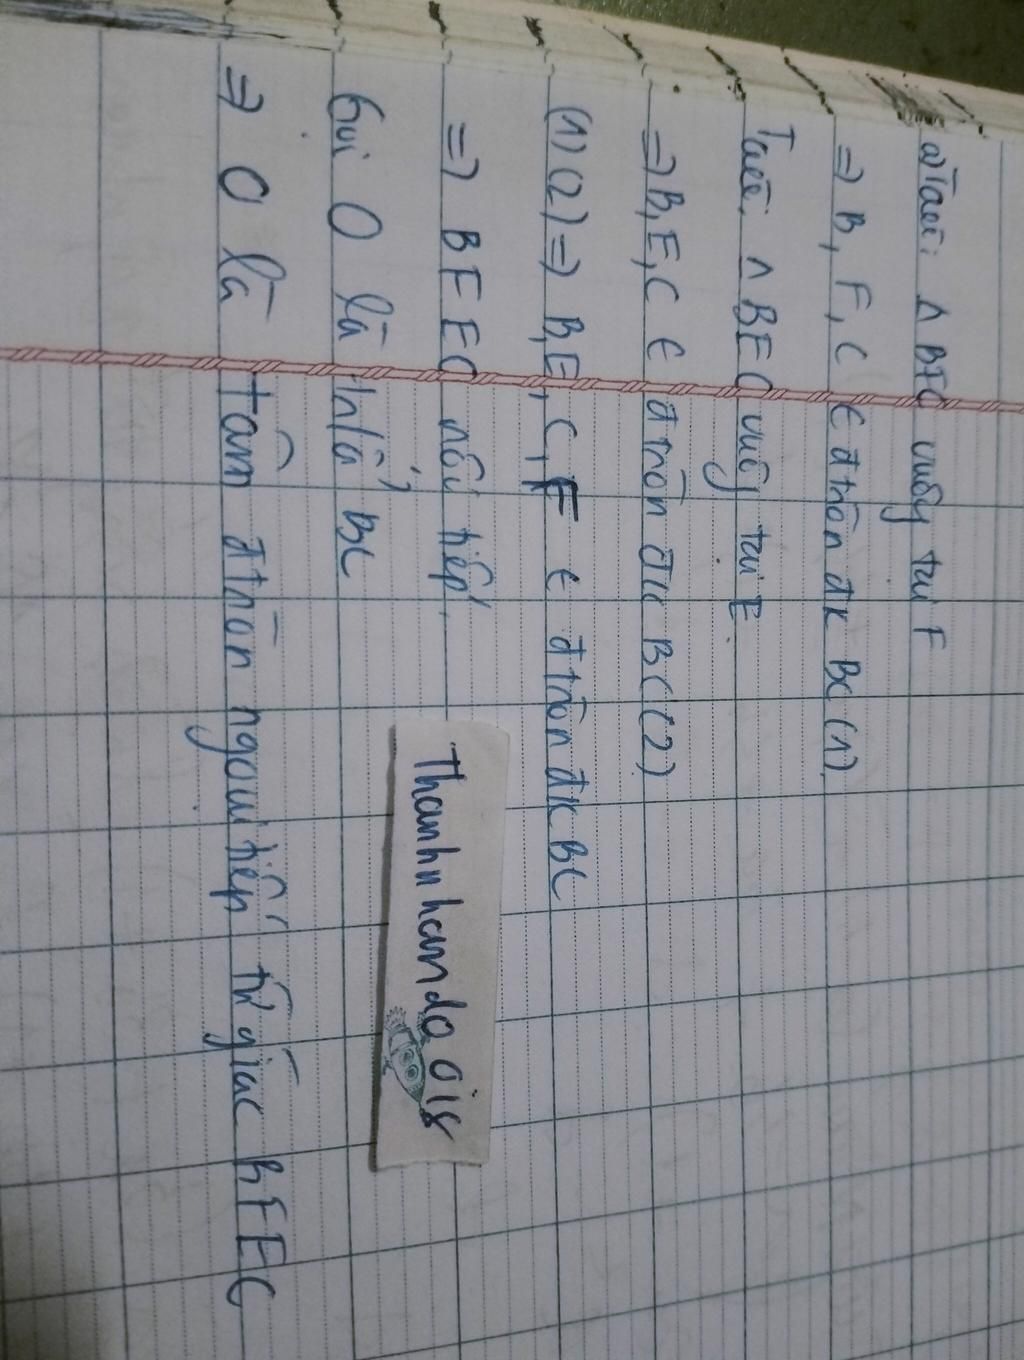 a) Ta có: Δ BFC vuông tại F
=> B, F, C ∈ đ tròn đk BC (1)
Ta có: Δ BEC vuông tại E.
=> B, E, C ∈ đ tròn đk BC (2)
(1) (2) => B, E, C, F ∈ đ tròn đk BC
=> BFEC nội tiếp.
Gọi O là BC
=> O là tâm đ tròn ngoại tiếp tứ giác BFEC
Thanhnhando ois